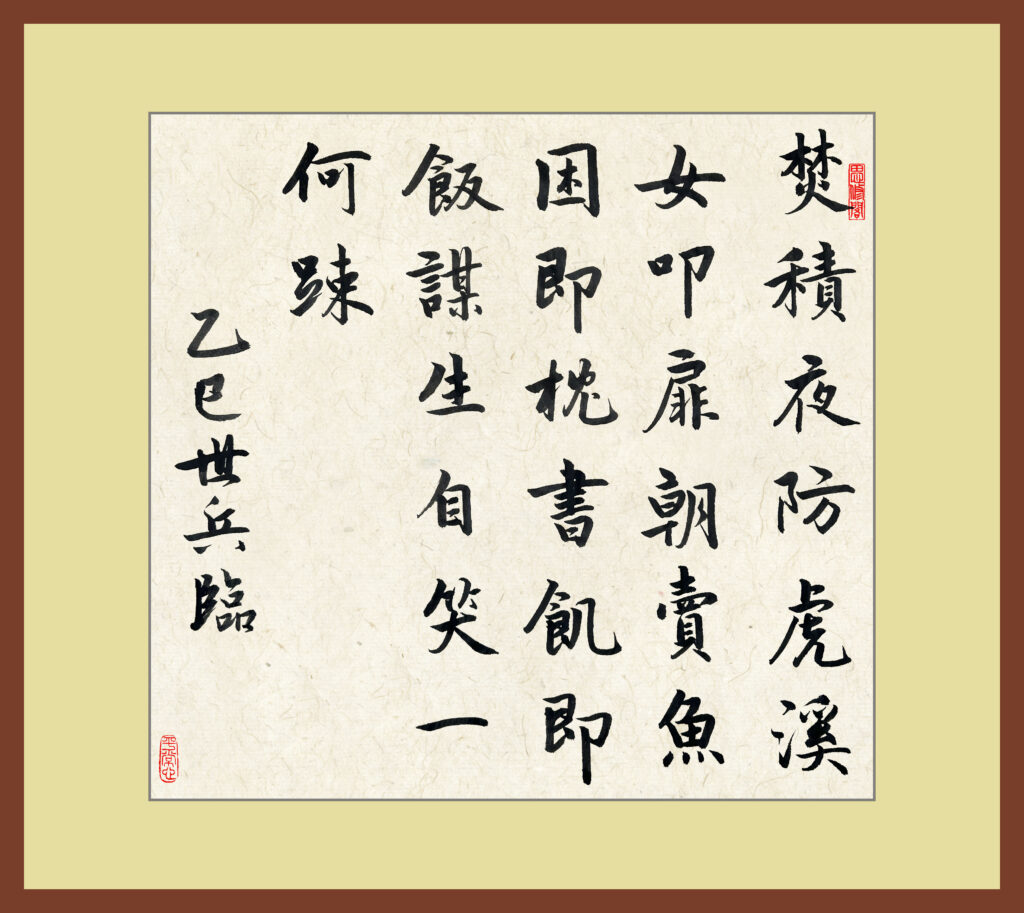 思修閣
焚積夜防虎溪
女叩扉朝賣魚
困即枕書飢即
飯謀生自笑一
何踈
乙巳世兵臨
平常心